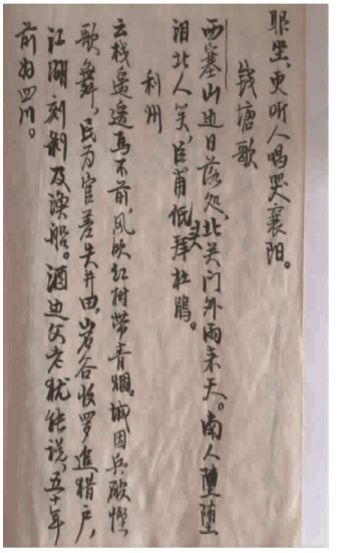 眼坐，更听人唱哭襄阳。
钱塘歌
西塞山边日落处，北关门外雨来天。南人堕堕
泪北人笑，臣甫低头拜杜鹃。
利州
云栈遥遥马不前，风吹红树带青烟。城因兵破悭
歌舞，民为官差失井田，岩谷收罗追猎户，
江湖刻剥及渔船。酒边父老犹能说，五十年
前为四川。